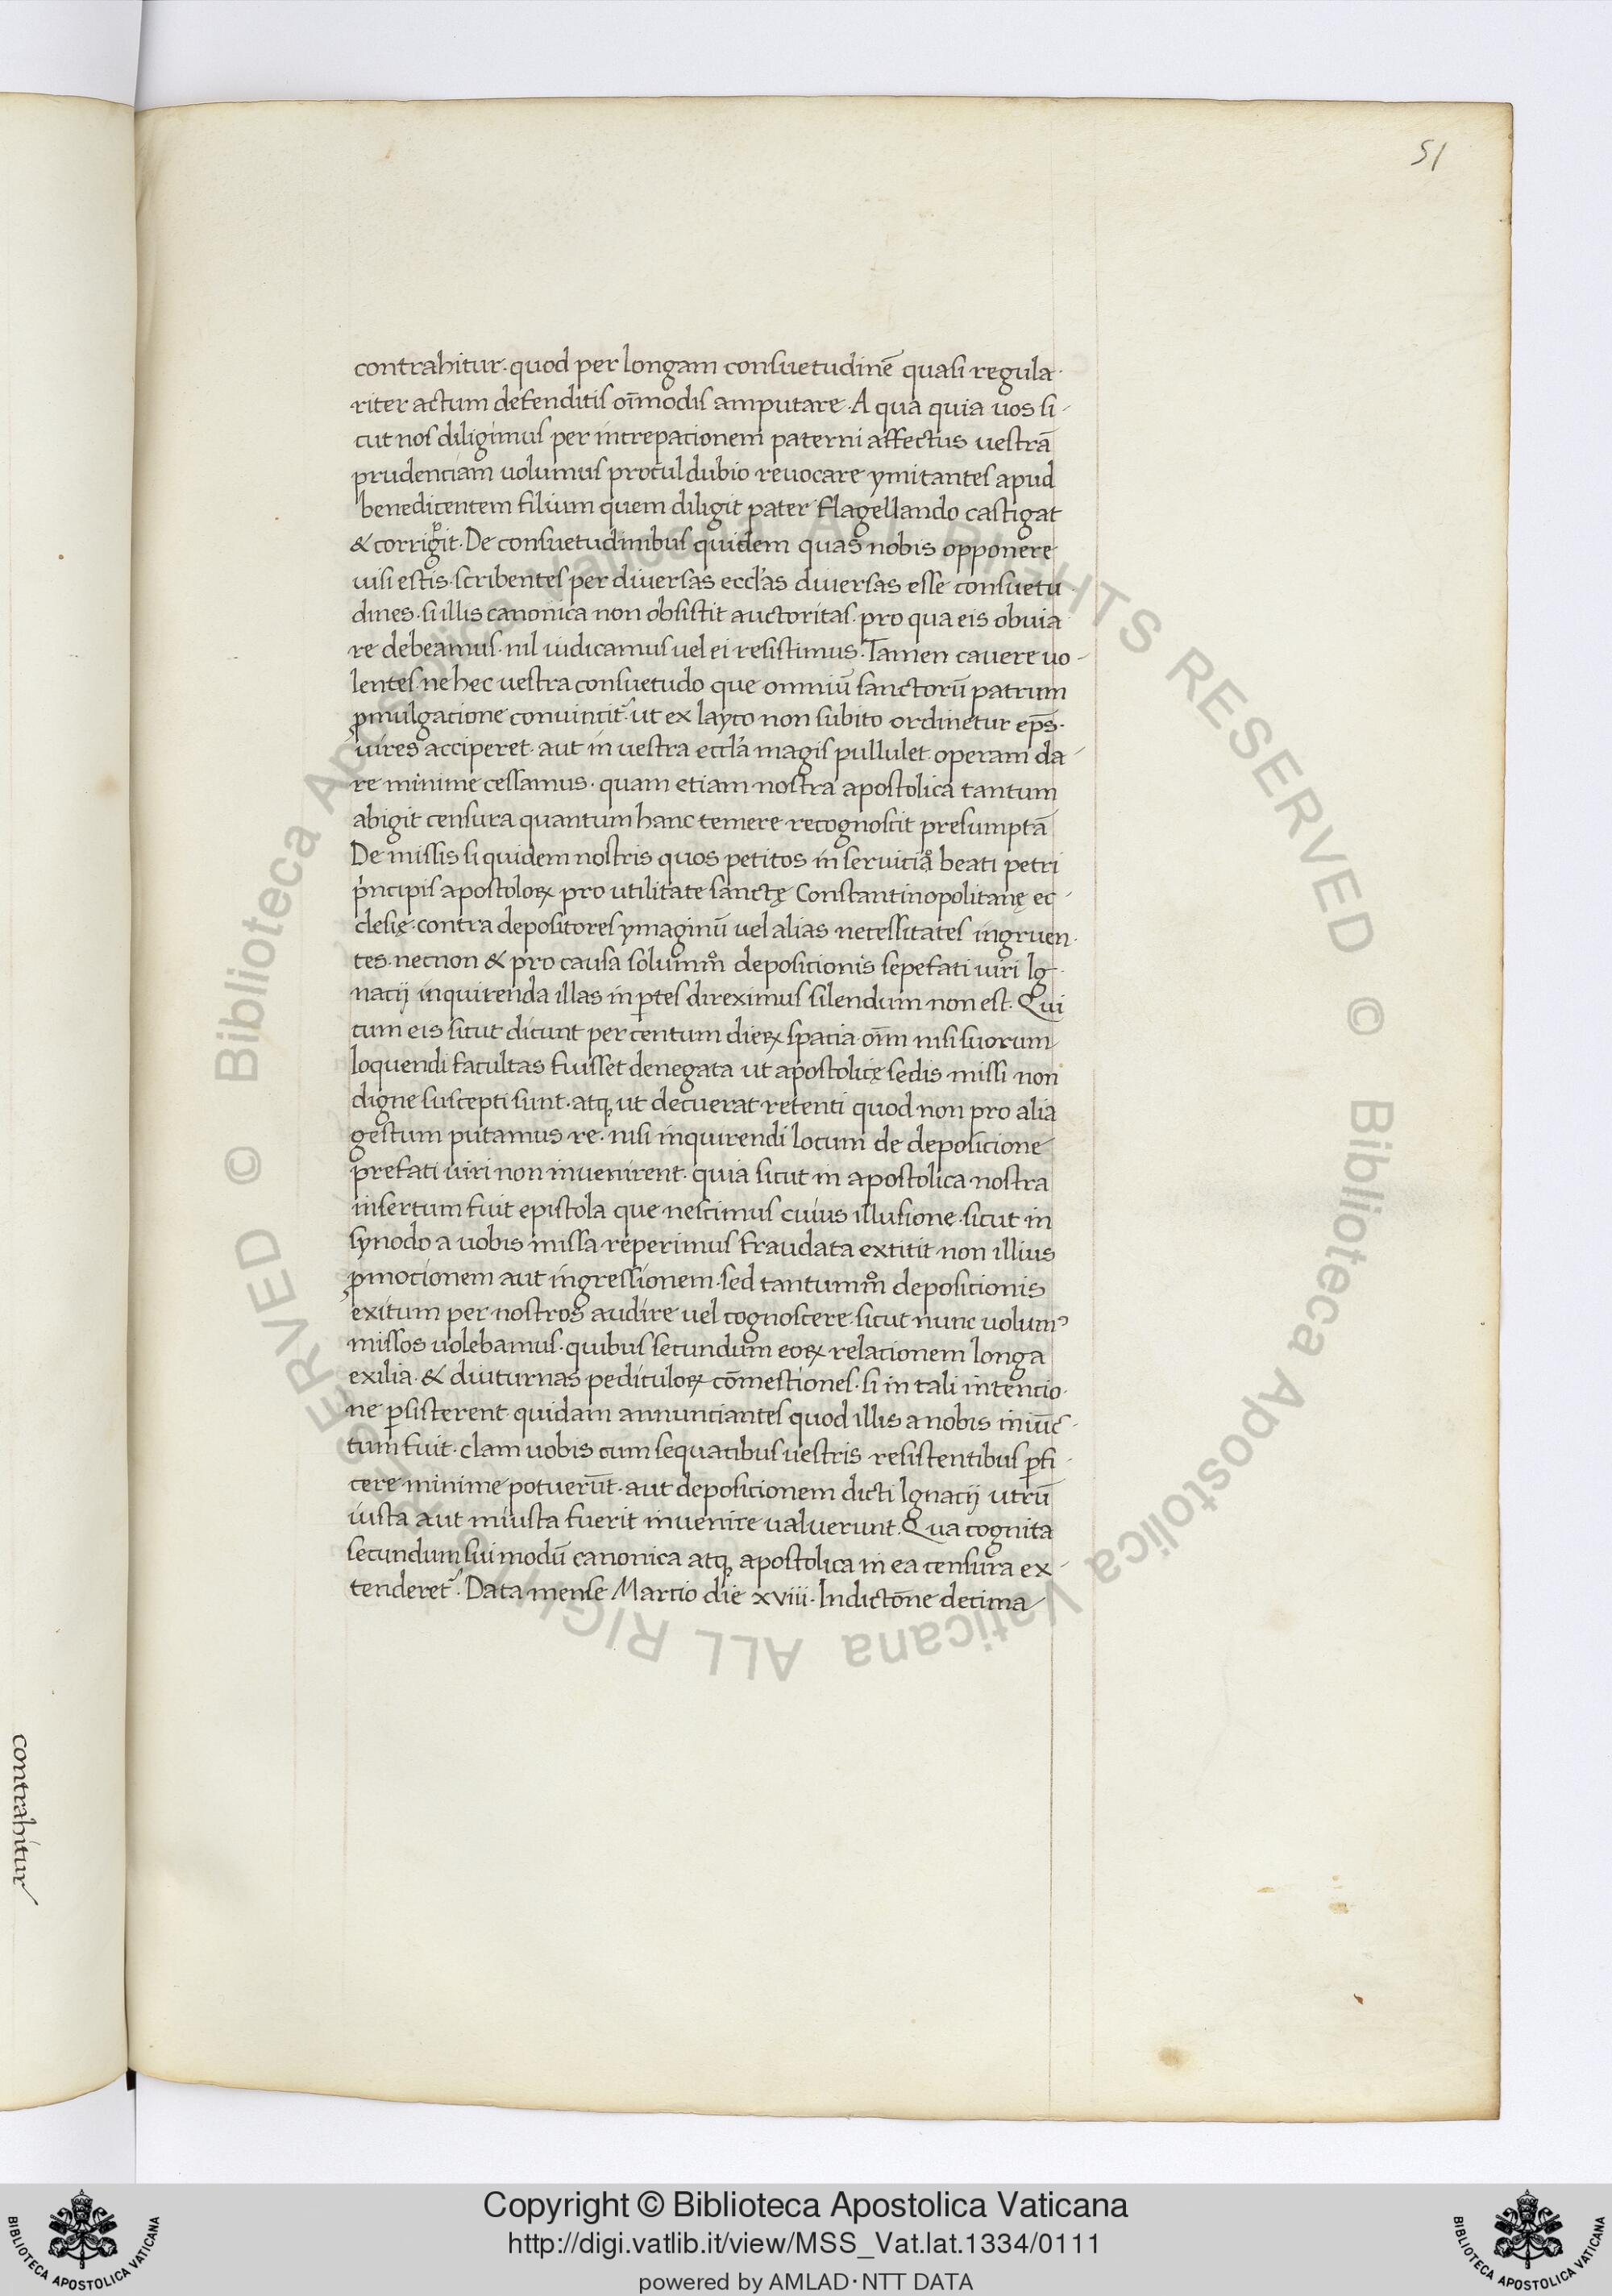 51
contrahitur· quod per longam consuetudinē quasi regula·
riter actum defenditis oīmodis amputare· A qua quia uos si-
cut nos diligimus per increpacionem paterni affectus uestrā
prudenciam uolumus procul dubio reuocare ymitantes apud
benedicentem filium quem diligit pater flagellando castigat
& corrigit· De consuetudinibus quidem quas nobis opponere
uisi estis· scribentes per diuersas eccl'as diuersas esse consuetu·
dines· si illis canonica non obsistit auctoritas· pro qua eis obuia
re debeamus· nil iudicamus uel ei resistimus· Tamen cauere uo-
lentes· ne hec uestra consuetudo que omniū sanctorū patrum
ꝓmulgacione conuincit᷒· ut ex layco non subito ordinetur ep̄s·
uires acciperet· aut in uestra eccl'a magis pullulet· operam da-
re minime cessamus· quam etiam nostra apostolica tantum
abigit censura quantum hanc temere recognoscit presumptā
De missis siquidem nostris quos petitos in seruiciū beati petri
p'ncipis apostoloꝝ pro utilitate sanctę Constantinopolitanę ec-
clesię· contra depositores ymaginū uel alias necessitates ingruen·
tes· necnon & pro causa solummͦ deposicionis sepefati uiri Ig·
nacij inquirenda illas in ꝑtes direximus silendum non est· Qui
cum eis sicut dicunt per centum dieꝝ spacia oīm nisi suorum
loquendi facultas fuisset denegata ut apostolicę sedis missi non
digne suscepti sunt· atqꝫ ut decuerat retenti quod non pro alia
gestum putamus re· nisi inquirendi locum de deposicione
prefati uiri non inuenirent· quia sicut in apostolica nostra
insertum fuit epistola que nescimus cuius illusione· sicut in
synodo a uobis missa reperimus fraudata extitit non illius
ꝓmocionem aut ingressionem· sed tantummͦ deposicionis
exitum per nostros audire uel cognoscere· sicut nunc uolumꝰ
missos uolebamus· quibus secundum eoꝝ relacionem longa
exilia· & diuturnas pediculoꝝ cōmestiones· si in tali intencio·
ne ꝑsisterent quidam annunciantes quod illis a nobis iniūc-
tum fuit· clam uobis cum sequacibus uestris resistentibus ꝑfi-
cere minime potuerūt· aut deposicionem dicti Ignacij utrū
iusta aut iniusta fuerit inuenire ualuerunt· Qua cognita
secundum sui modū canonica atqꝫ apostolica in ea censura ex-
tenderet᷒· Data mense Marcio die xviii· Indictōne decima
contrahitur
© Biblioteca Apostolica Vaticana ALL RIGHTS RESERVED © Biblioteca Apostolica Vaticana ALL RIGHTS RESERVED
Copyright © Biblioteca Apostolica Vaticana
http://digi.vatlib.it/view/MSS_Vat.lat.1334/0111
powered by AMLAD·NTT DATA
BIBLIOTECA APOSTOLICA VATICANA
BIBLIOTECA APOSTOLICA VATICANA